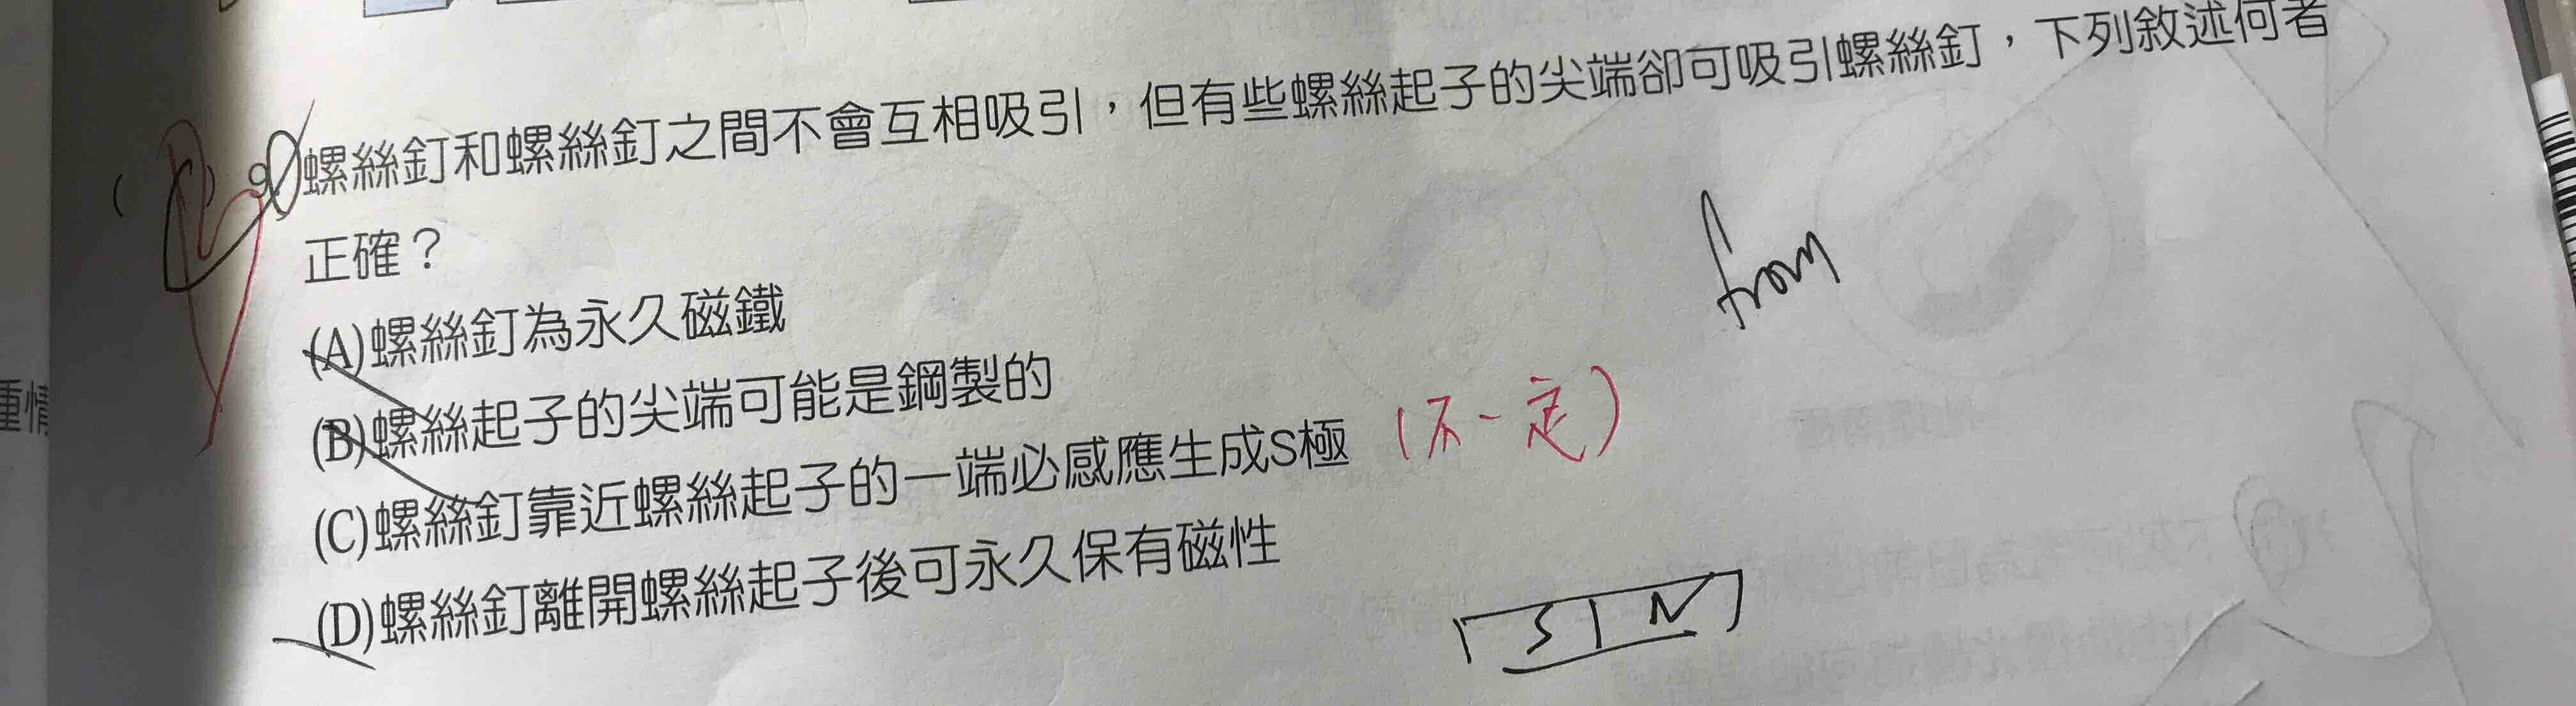 9. 螺絲釘和螺絲釘之間不會互相吸引，但有些螺絲起子的尖端卻可吸引螺絲釘，下列敘述何者
正確？
(A)螺絲釘為永久磁鐵
(B)螺絲起子的尖端可能是鋼製的
(C)螺絲釘靠近螺絲起子的一端必感應生成S極 (不一定)
(D)螺絲釘離開螺絲起子後可永久保有磁性
from
S N
重情